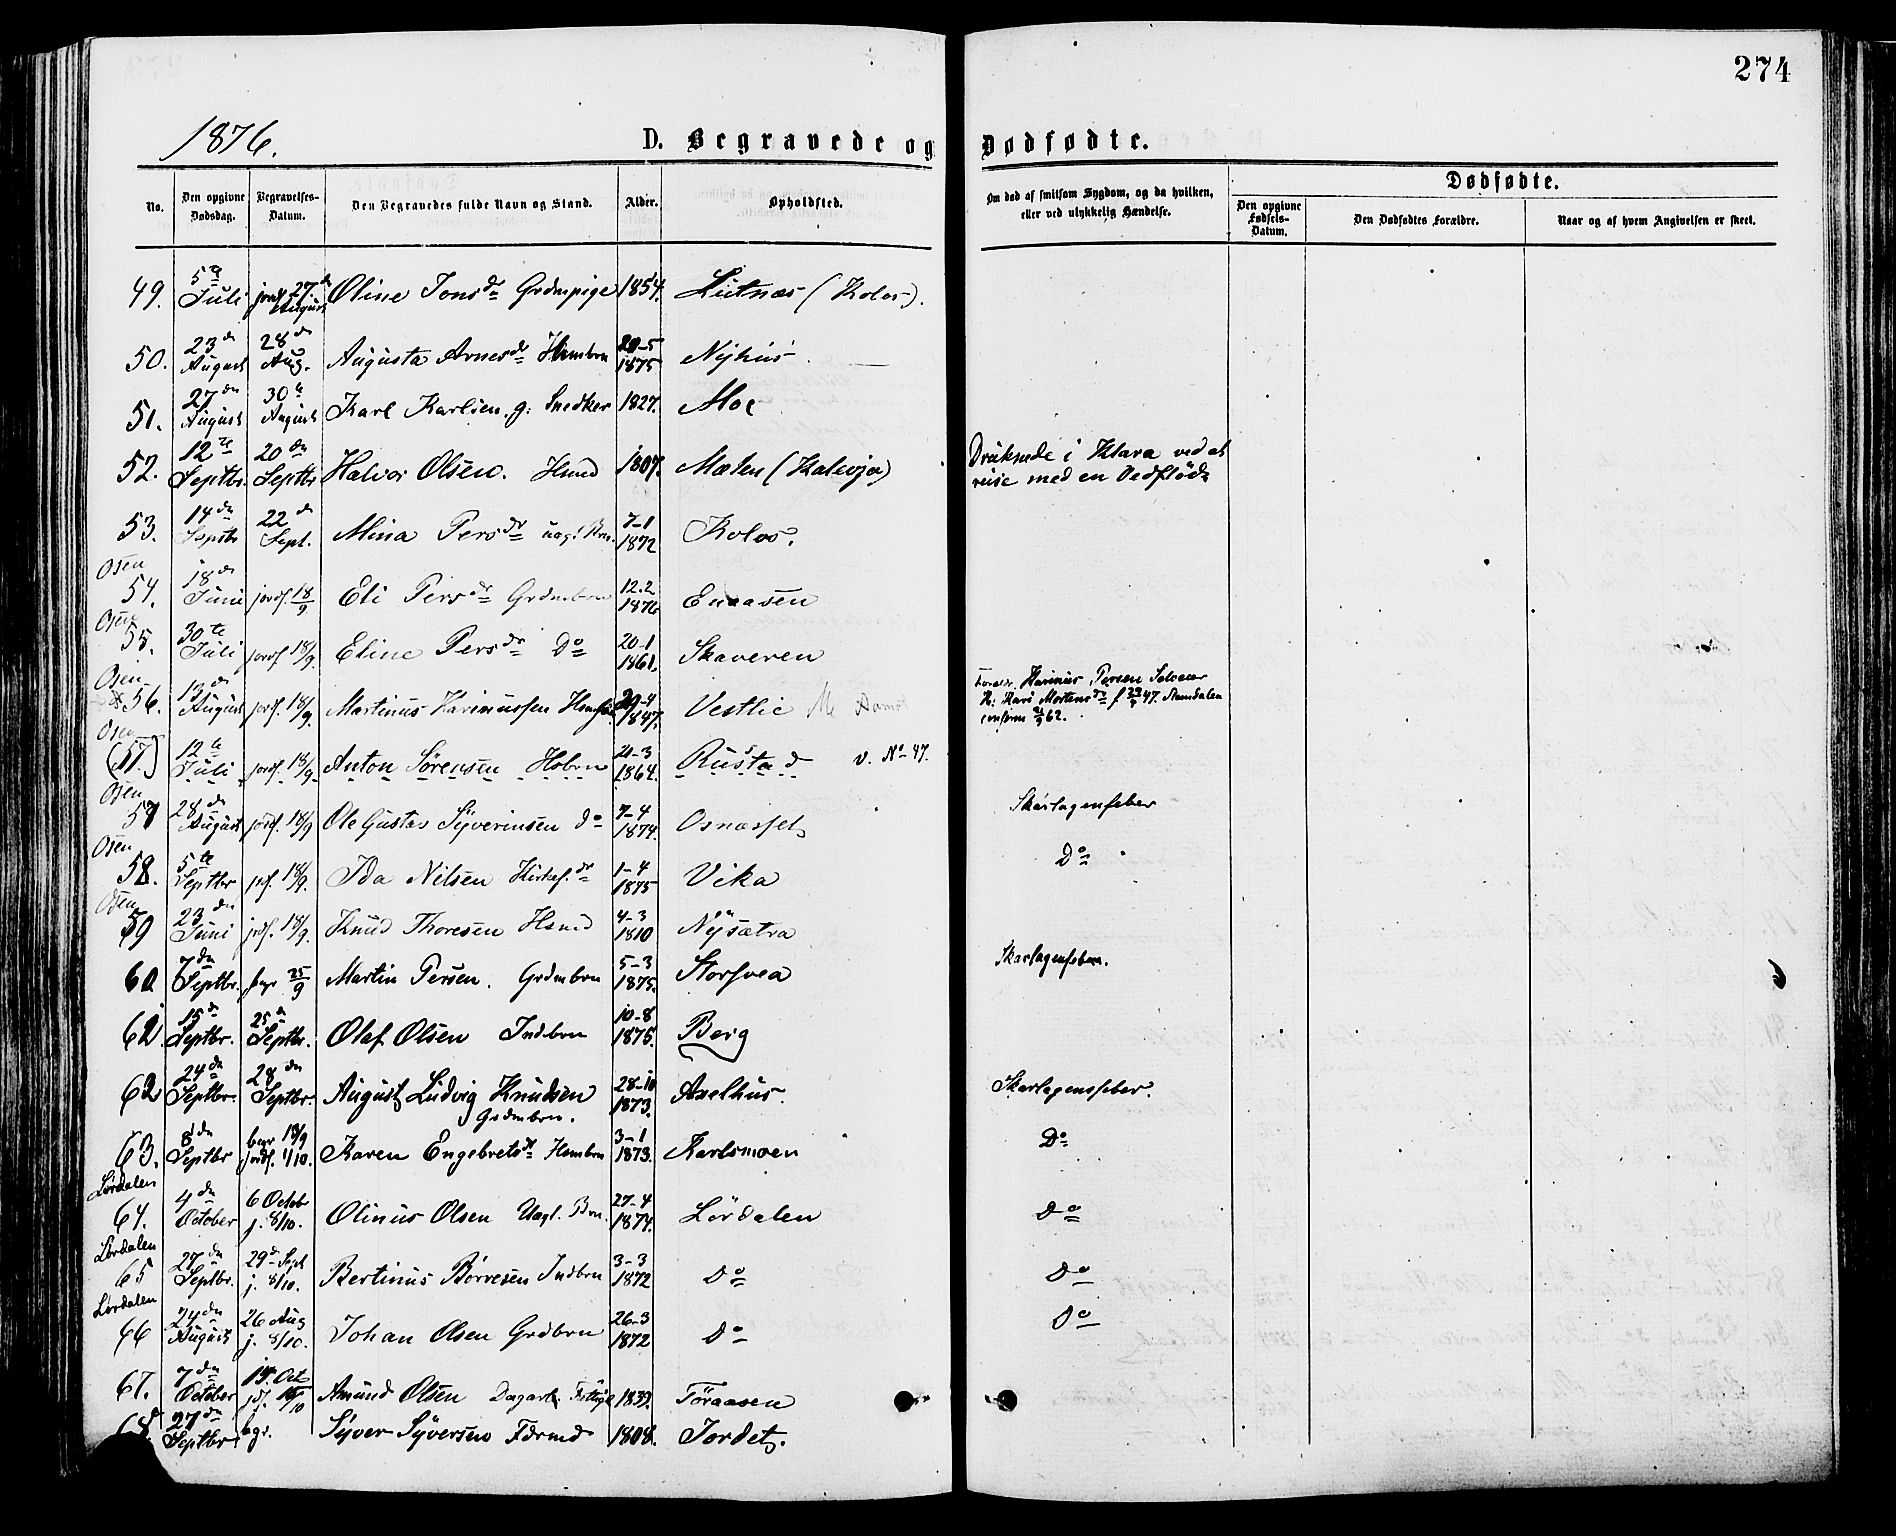 274
1876.
D. Begravede og Dødfødte.
No.
Den opgivne Dødsdag.
Begravelses-Datum.
Den Begravedes fulde Navn og Stand.
Alder.
Opholdsted.
Om død af smitsom Sygdom, og da hvilken, eller ved ulykkelig Hændelse.
Dødfødte.
Den opgivne Fødsels-Datum.
Den Dødfødtes Forældre.
Naar og af hvem Angivelsen er skeet.
49. 5te Juli jordf. 27. August Oline Jonsdr Grdmpige 1854. Lutnæs (Kolos).
50. 23dn August 28dn Aug. Augusta Arnesdr Hsmbrn 29-5 1875 Nyhus
51. 27dn August 30te August Karl Karlsen g: Snedker 1827. Moe
52. 12te Septbr. 20dn Septbr Halvor Olsen. Hsmd 1807. (Kalvsjø) Druknede i Klara ved at
reise med en Vedflöde
53. 14dn Septbr 22dn Sept. Mina Persdr uægt. Brn. 7-1 1872 Kolos.
Osen
54. 18dn Juni jordf. 18/9 Eli Persdr Grdmbrn 12.2 1876 Enaasen
Osen
55. 30te Juli jordf. 18/9. Eline Persdr Do 20-1 1861. Skaveren
Osen
56. 13dn August jordf. 18/9. Martinus Karinussen 29-4 1847. Vestlie
Karinus Persen
H: Kari Mortensdr f. 47.
62.
Osen
(57.) 12te Juli jordf. 18/9. Anton Sørensen Hsbrn 21-3 1864. Rustad v. No 47.
Osen
57 28dn August jordf. 18/9 Ole Gustav Syverinsen do 7-4 1874. Osnæsset Skarlagensfeber
Osen
58. 5te Septbr jdf. 18/9. Ida Nilsen 1-4 1875 Vika Do
Osen
59 23dn Juni jrdf. 18/9. Knud Thoresen Hsmd 4-3 1810 Nysætra
60 7dn Septbr. begr 25/9 Martin Persen. Grdmbrn 5-3 1875. Storsvea Skarlagensfeber.
61. 15dn Septbr. 25dn Septbr. Olaf Olsen Indbrn 10-8 1875. Berg
62 24dn Septbr. 28dn Septbr. August Ludvig Knudsen 28-10 1873. Axelhus. Skarlagensfeber.
Grdmbrn.
63. 8dn Septbr begr 18/9 jordf. 1/10. Karen Engebretsdr Hsmbrn 3-1 1873. Karlsmoen Do
Lördalen
64. 4dn October 6 Octobr j. 8/10. Olinus Olsen Uægt. Brn. 27-4 1874. Lördalen Do
Lördalen
65 27dn Septbr. 29d Sept j. 8/10. Bertinus Börresen Indbrn 3-3 1872 Do Do
Lördalen
66 24dn August 26 Aug j. 8/10. Johan Olsen Grdbrn 26-3 1872 Do Do
67. 7dn October Oct jdf. Amund Olsen Dagarb. Töraasen
68. 27dn Septbr. bgr. Syver Syversen 1808. Jordet.